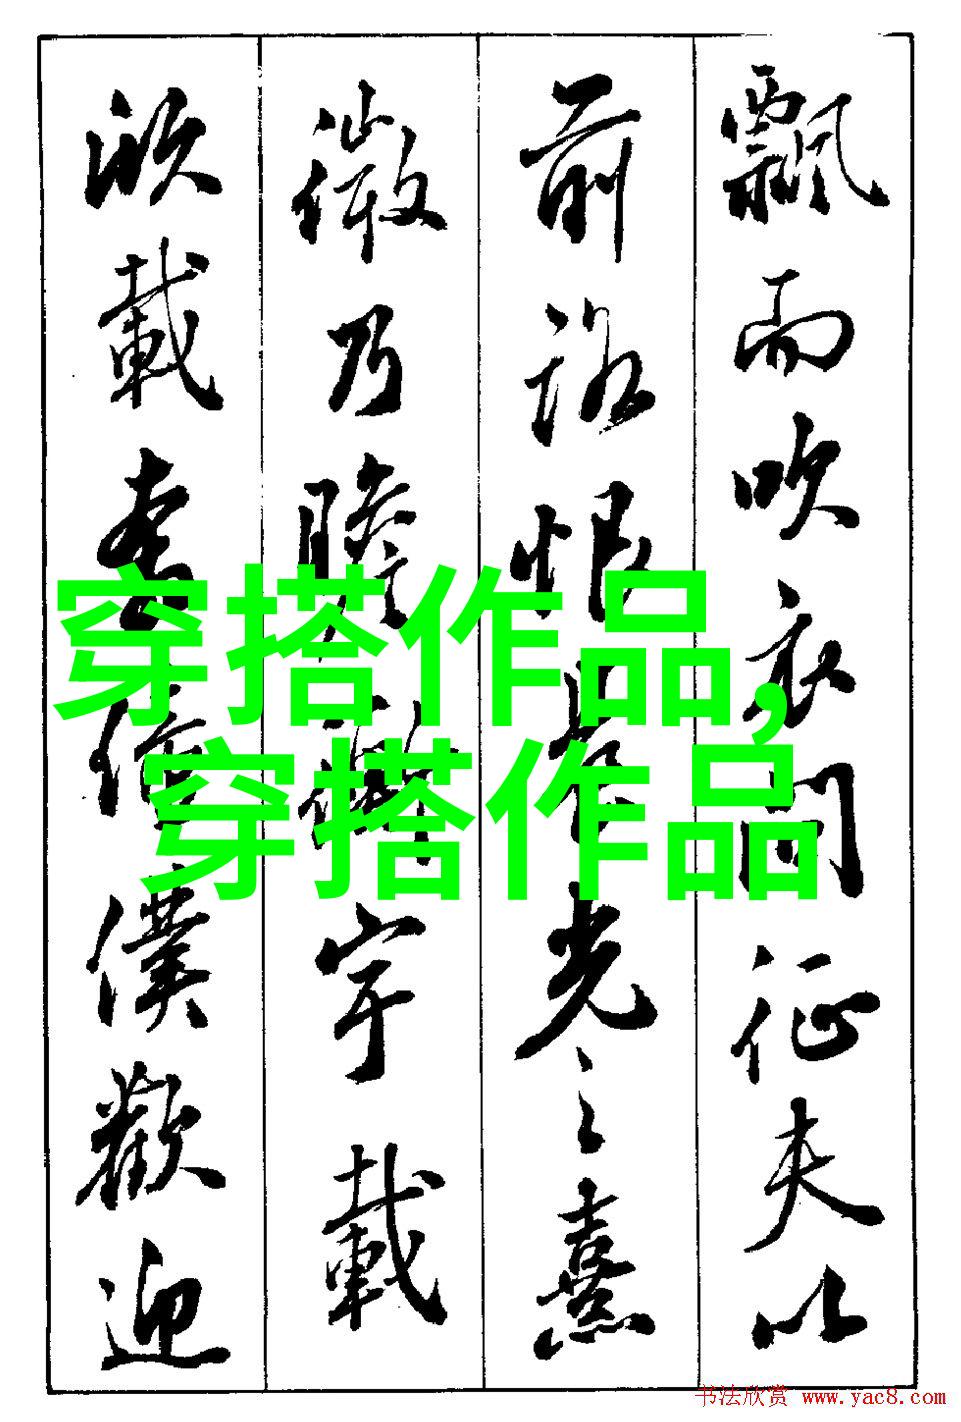 飄而吹衣問征夫以
前路恨晨光之熹
微乃瞻衡宇載
欣載奔僮僕歡迎
穿搭作品,
穿搭作品
书法欣赏 www.yac8.com